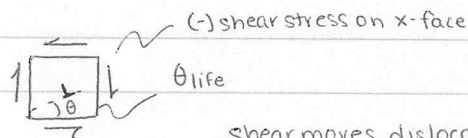 (-) shear stress on x-face
θ
θlife
shear moves disloc